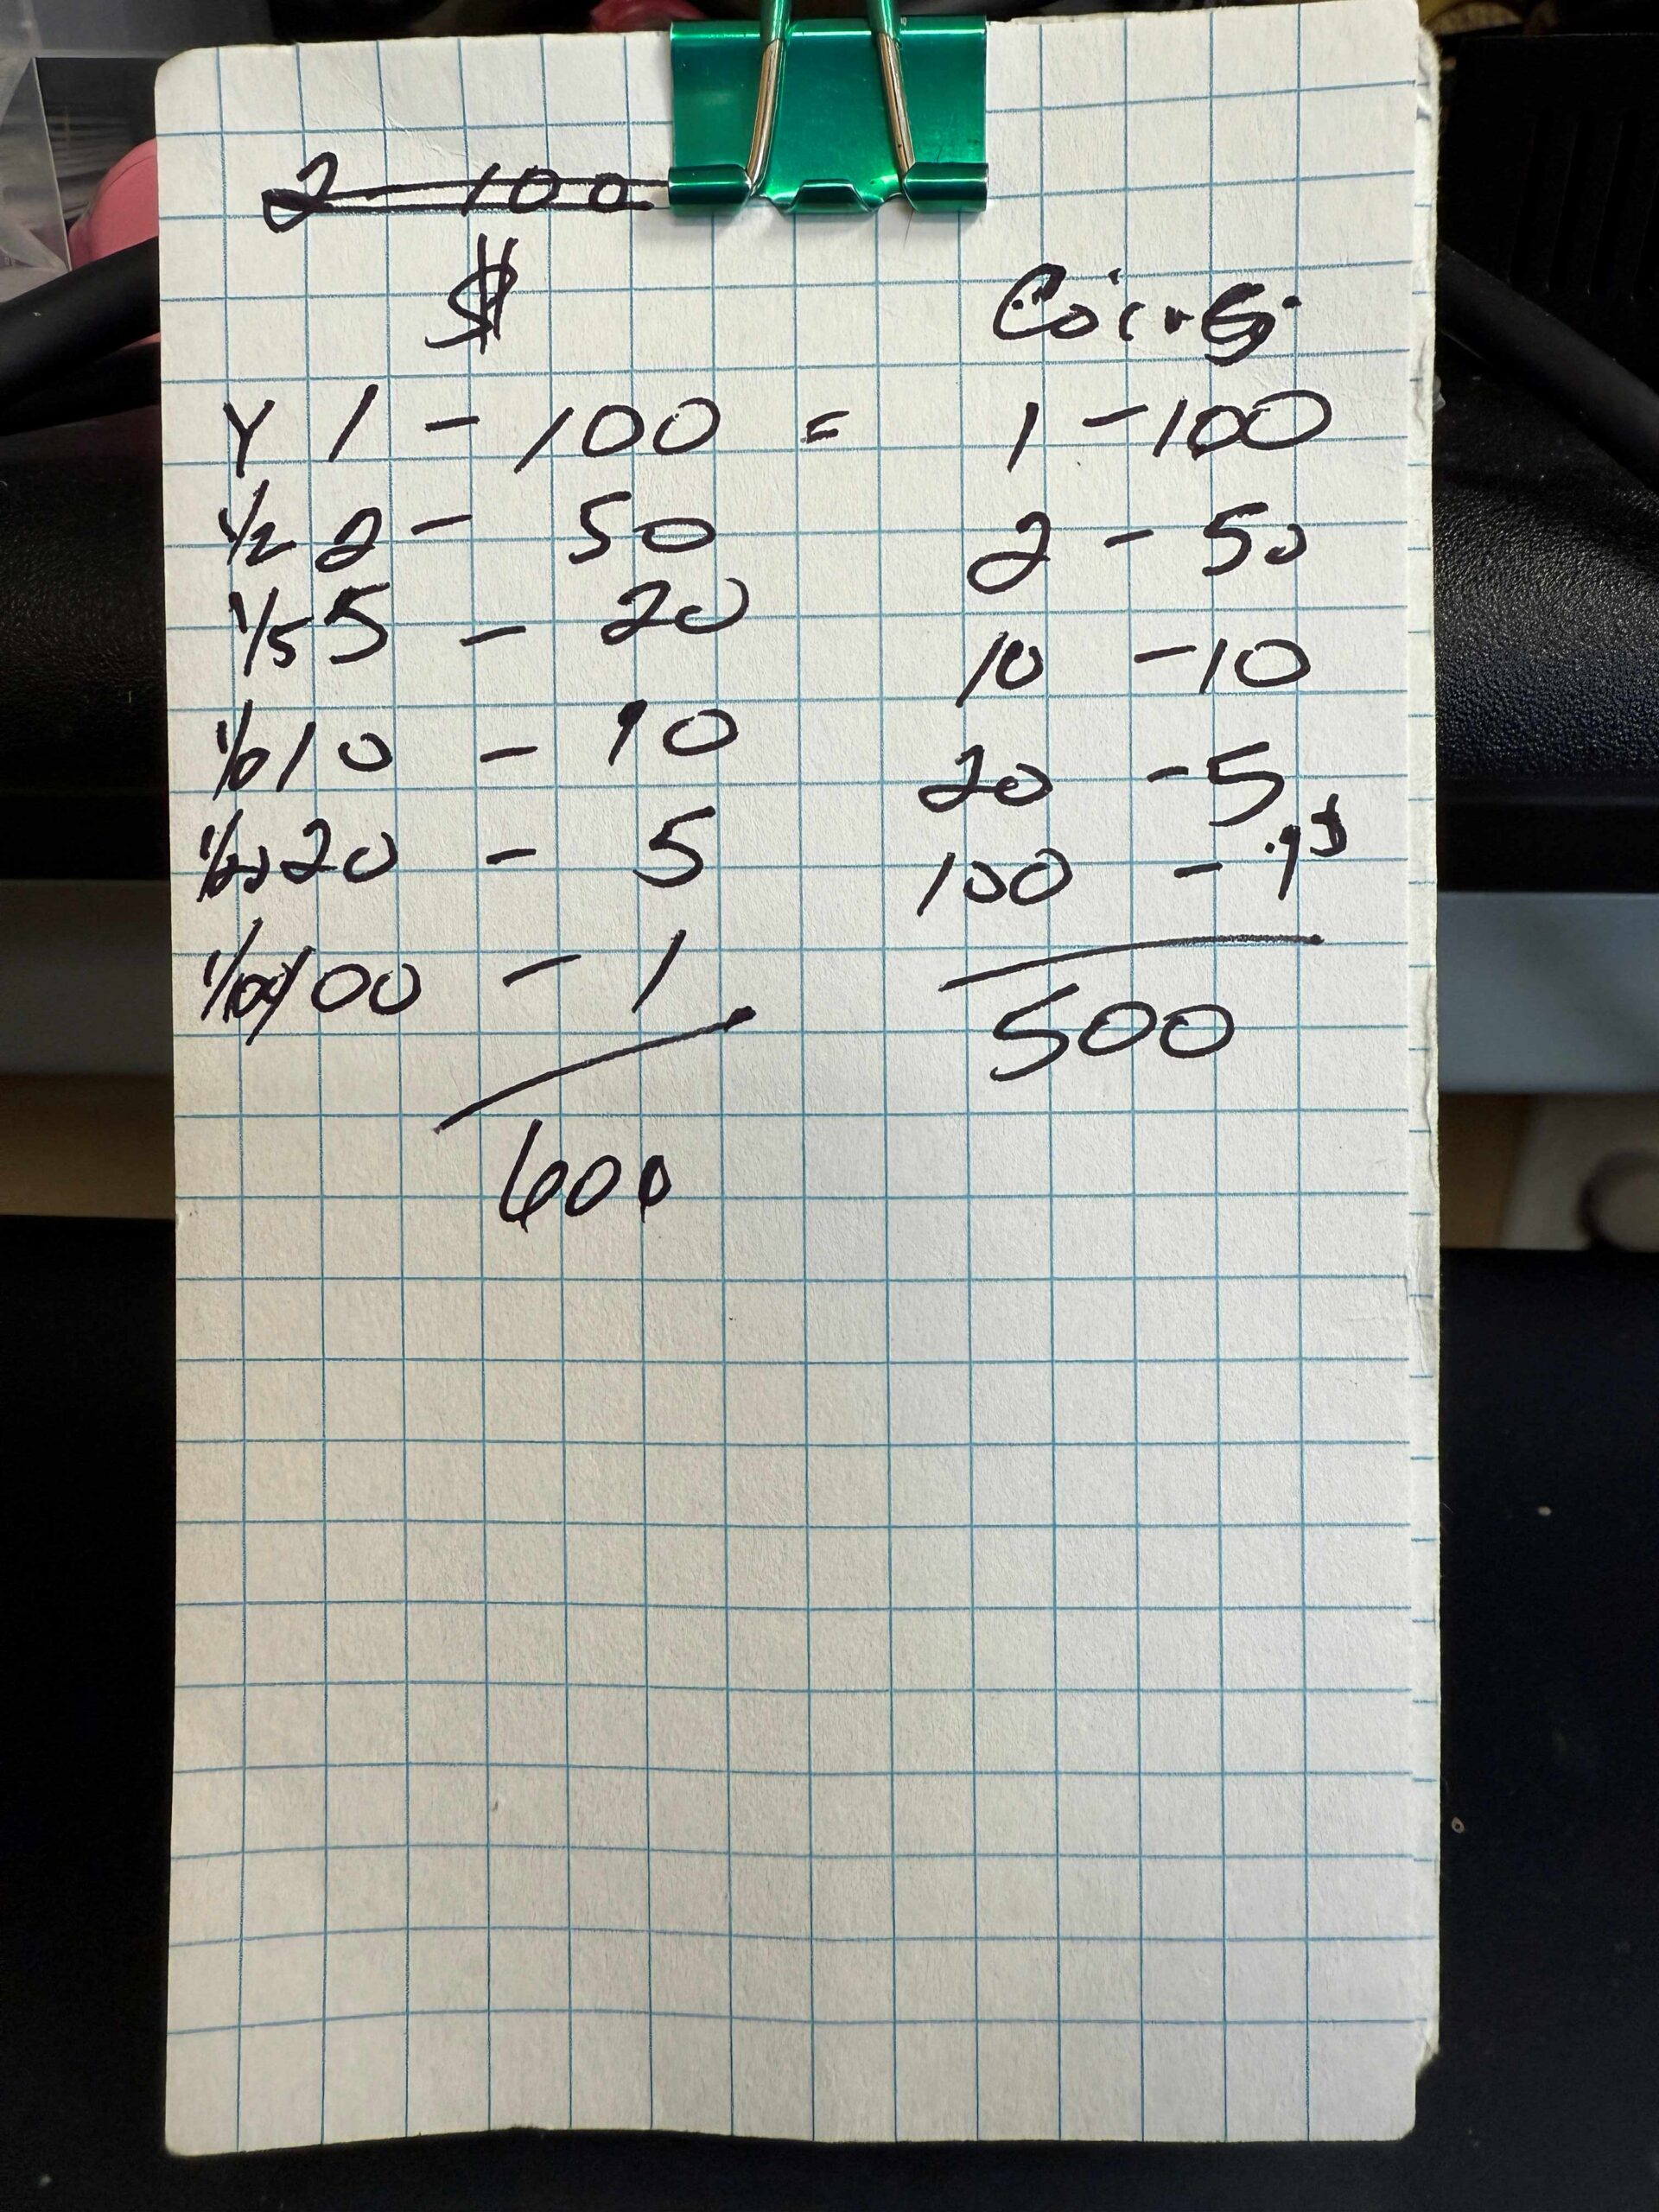 2 - 100
$ Coins
Y 1 - 100 = 1 - 100
1/2 2 - 50 2 - 50
1/5 5 - 20 10 - 10
1/10 10 - 10 20 - 5
1/20 20 - 5 100 - 1
1/100 100 - 1 500
600